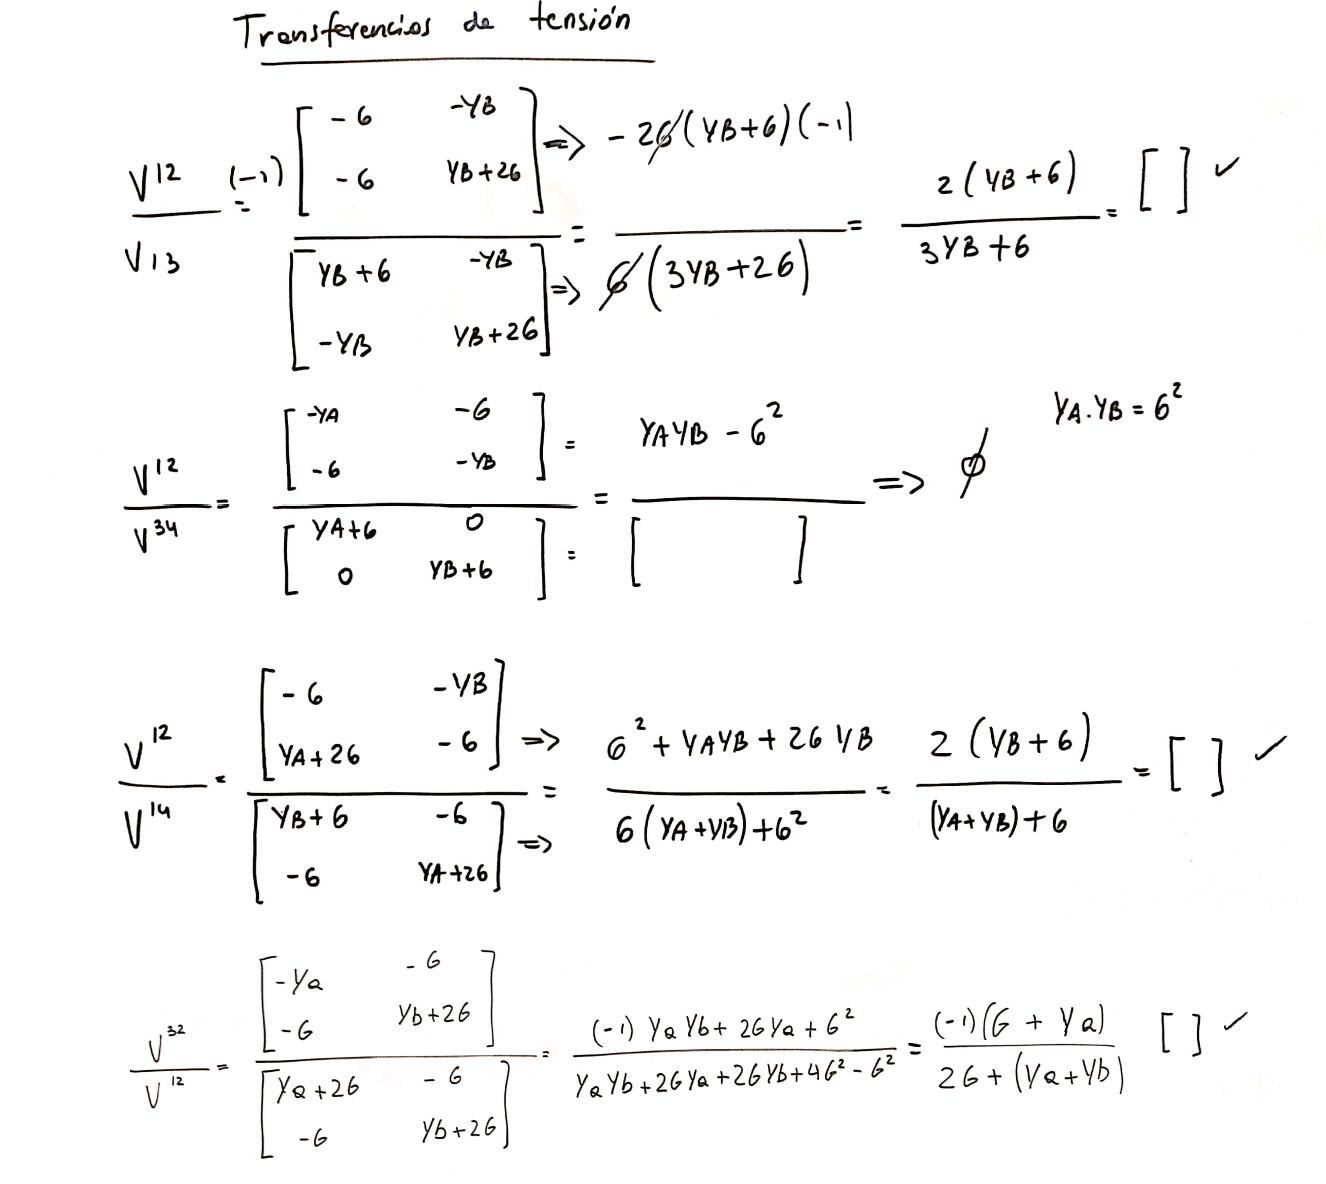 Transferencias de tensión
V^12 / V13 = (-1) [ -6 -YB ; -6 YB+26 ] / [ YB+6 -YB ; -YB YB+26 ] => -26(YB+6)(-1) / => 6(3YB+26) = 2(YB+6) / 3YB+6 = [ ] ✓
V^12 / V^34 = [ -YA -6 ; -6 -YB ] / [ YA+6 0 ; 0 YB+6 ] = YAYB - 6^2 / [ ] => ϕ YA.YB = 6^2
V^12 / V^14 = [ -6 -YB ; YA+26 -6 ] / [ YB+6 -6 ; -6 YA+26 ] => 6^2 + YAYB + 26YB / 6(YA+YB)+6^2 = 2(YB+6) / (YA+YB)+6 = [ ] ✓
V^32 / V^12 = [ -Ya -G ; -G Yb+2G ] / [ Ya+2G -G ; -G Yb+2G ] = (-1) YaYb + 2GYa + G^2 / YaYb+2GYa+2GYb+4G^2-G^2 = (-1)(G+Ya) / 2G+(Ya+Yb) [ ] ✓